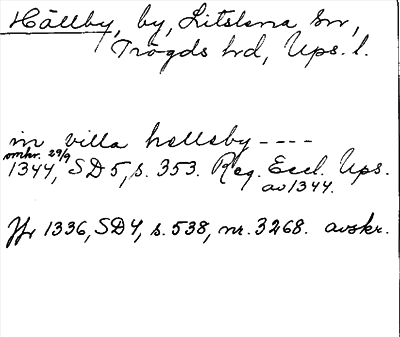 Hällby, by, Litslena sn,
Trögds hd, Ups. l.
in villa hælleby ----
omkr. 29/9
1344, SD 5, s. 353. Reg. Eccl. Ups.
av 1344.
Jfr 1336, SD 4, s. 538, nr. 3268. avskr.